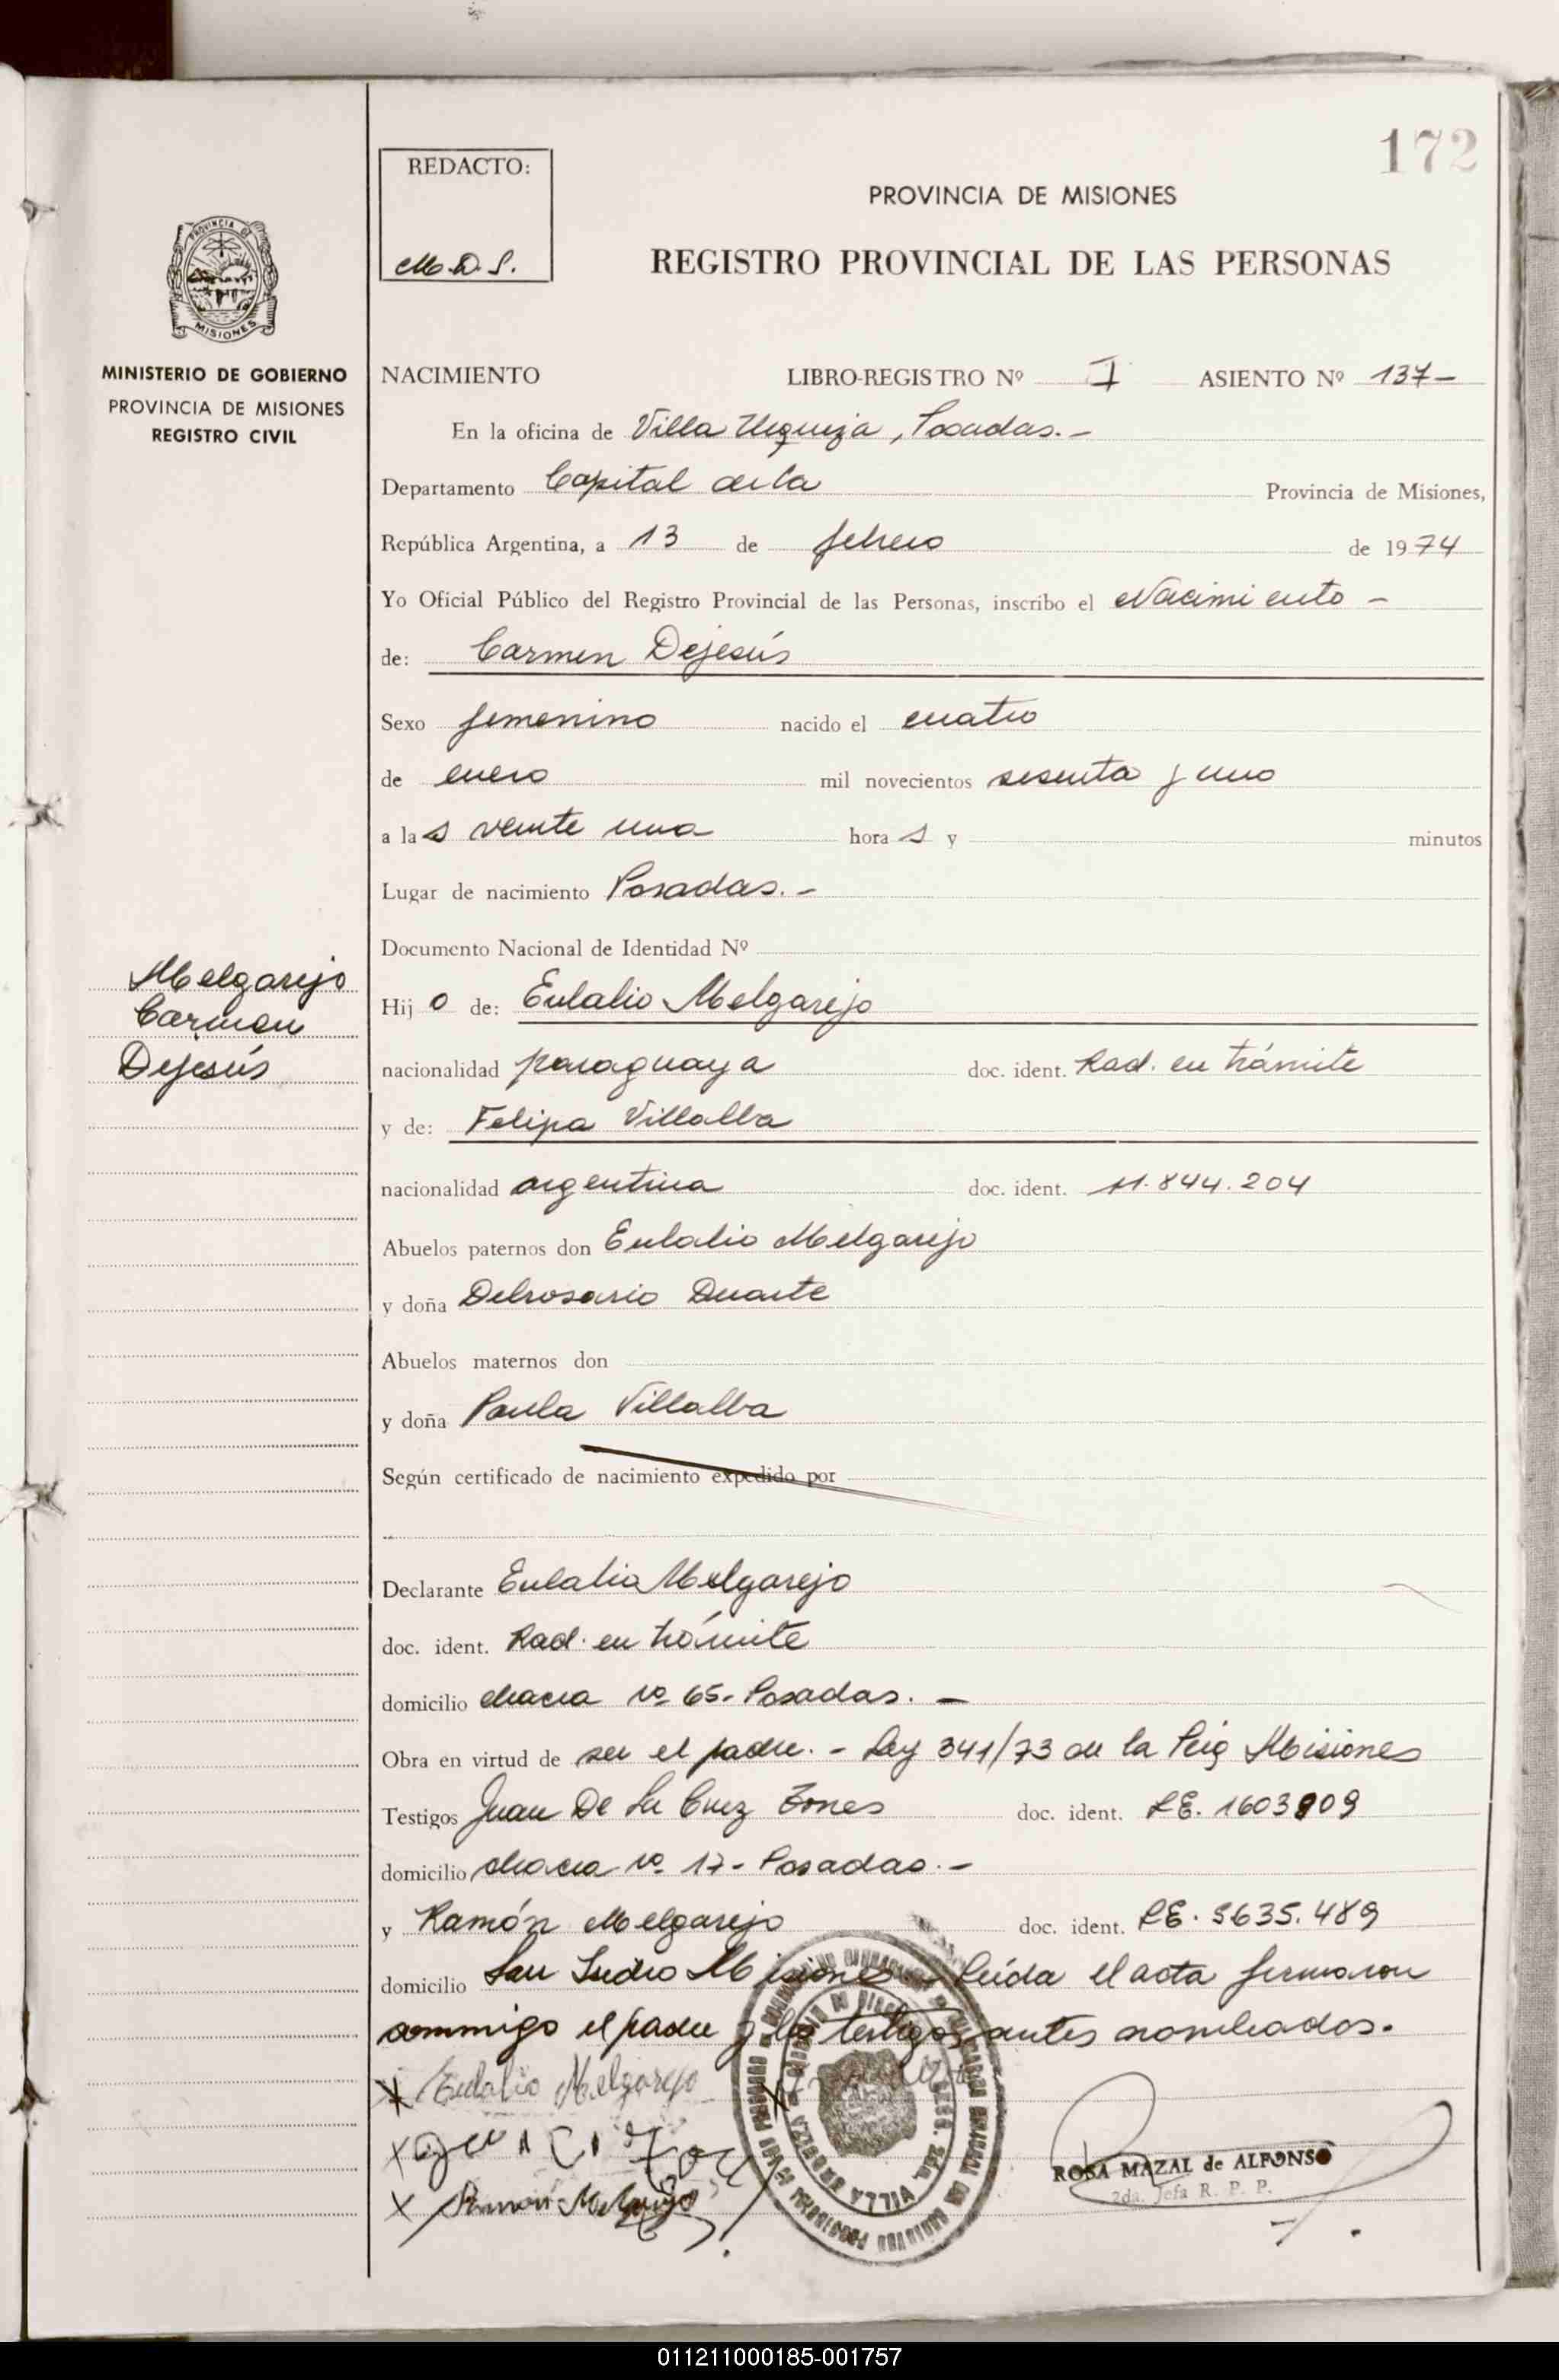 172
REDACTO:
M.D.S.
PROVINCIA DE MISIONES
REGISTRO PROVINCIAL DE LAS PERSONAS
PROVINCIA DE
MISIONES
MINISTERIO DE GOBIERNO
PROVINCIA DE MISIONES
REGISTRO CIVIL
NACIMIENTO LIBRO-REGISTRO Nº I ASIENTO Nº 137-
En la oficina de Villa Urquiza, Posadas.-
Departamento Capital de la Provincia de Misiones,
República Argentina, a 13 de febrero de 1974
Yo Oficial Público del Registro Provincial de las Personas, inscribo el Nacimiento -
de: Carmen Dejesús
Sexo femenino nacido el cuatro
de enero mil novecientos sesenta y uno
a las veinte una horas y minutos
Lugar de nacimiento Posadas.-
Documento Nacional de Identidad Nº
Melgarejo
Carmen
Dejesús
Hijo de: Eulalio Melgarejo
nacionalidad paraguaya doc. ident. Rad. en trámite
y de: Felipa Villalba
nacionalidad argentina doc. ident. 11.844.204
Abuelos paternos don Eulalio Melgarejo
y doña Delrosario Duarte
Abuelos maternos don
y doña Paula Villalba
Según certificado de nacimiento expedido por
Declarante Eulalio Melgarejo
doc. ident. Rad. en trámite
domicilio chacra nº 65- Posadas. -
Obra en virtud de ser el padre. - Ley 341/73 de la Misiones
Testigos Juan De La Cruz doc. ident. 1603909
domicilio chacra nº 17- Posadas.-
y Ramón Melgarejo doc. ident. 5635.489
domicilio San Misiones - Leída el acta firmaron
conmigo el padre y los testigos antes nombrados.
x Eulalio Melgarejo x
x
x Ramón Melgarejo
VILLA URQUIZA
ROSA MAZAL de ALFONSO
2da. Jefa R. P. P.
011211000185-001757